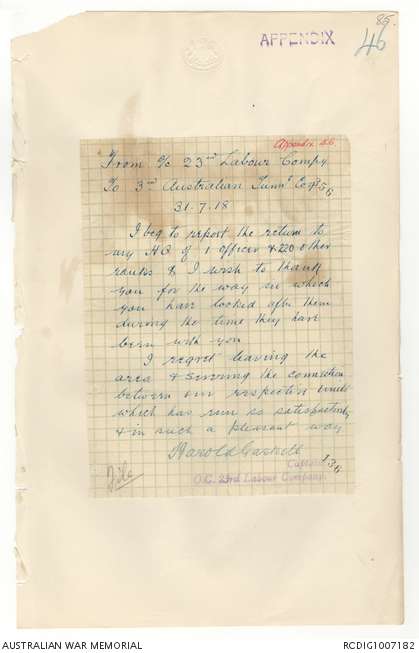 85.
APPENDIX
46
Appendix 46
From O/C 23rd Labour Compy
To 3rd Australian Tunng Coy
56
31.7.18
I beg to report the return to
my HQ of 1 Officer & 220 other
ranks & I wish to thank
you for the way in which
you have looked after them
during the time they have
been with you
I regret leaving the
area & severing the connection
between our respective units
which has run so satisfactorily
& in such a pleasant way
Harold Gaskell
Captain
136
O.C. 23rd Labour Company.
File
AUSTRALIAN WAR MEMORIAL
RCDIG1007182